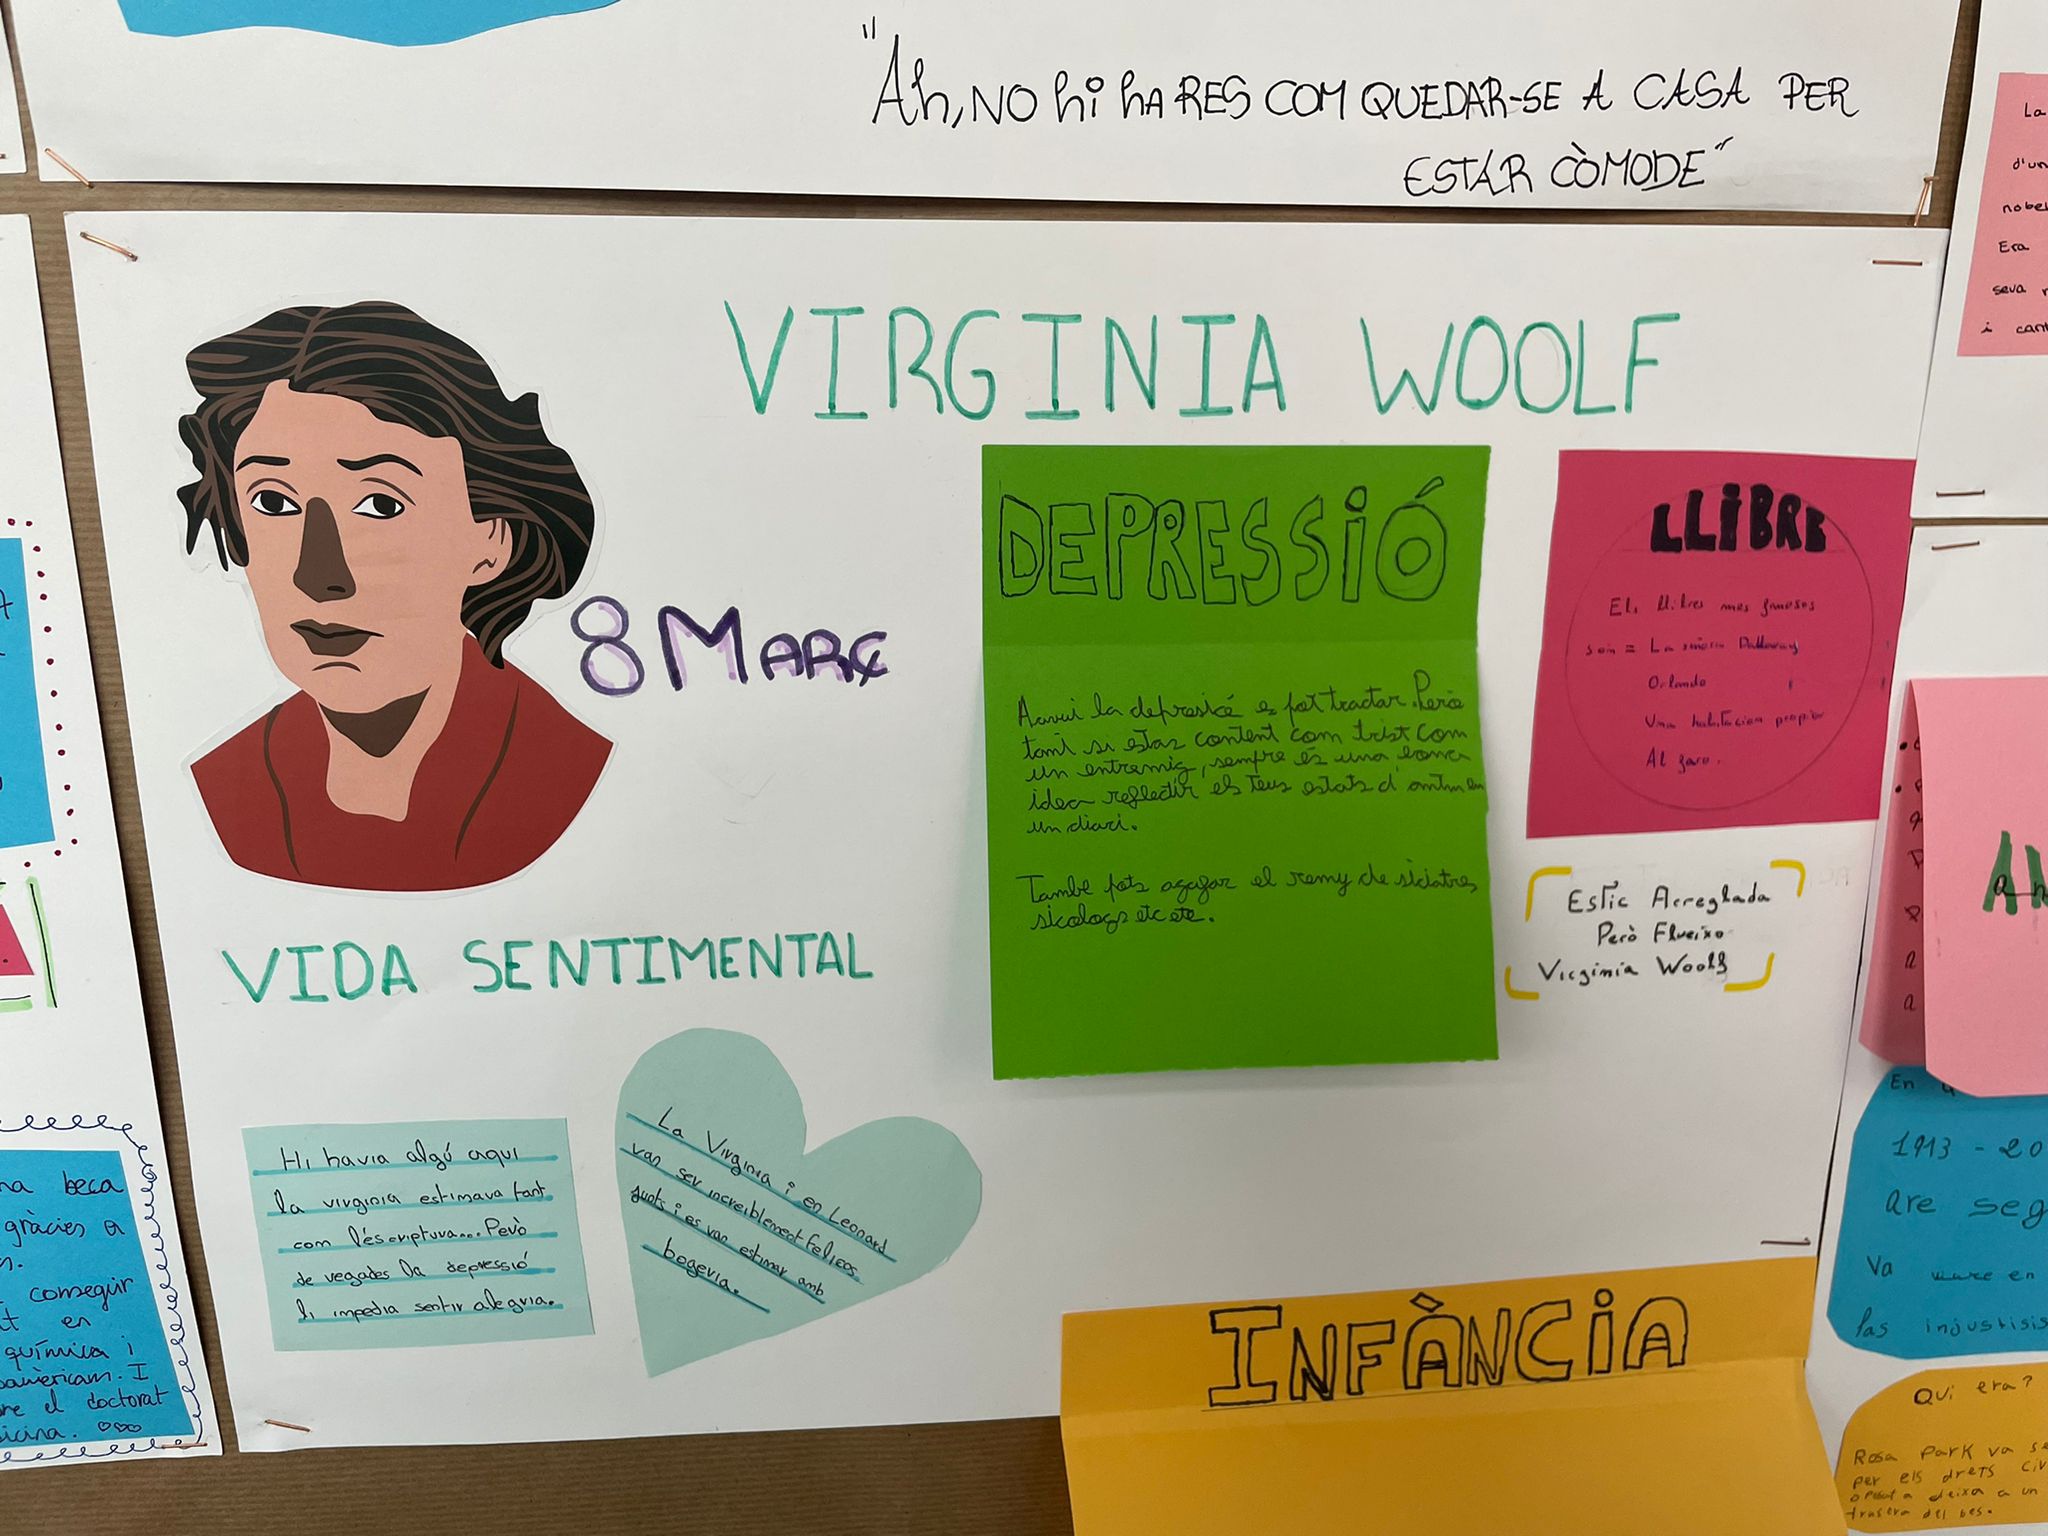 "Ah, NO hi ha RES COM QUEDAR-SE A CASA PER
ESTAR CÒMODE"
VIRGINIA WOOLF
8 MARÇ
DEPRESSIÓ
la depresió es pot tractar. Però
tant si estas content com trist com
un entremig, sempre és una bona
idea reflectir els teus estats d'
un diari.
També pots agafar el de
sicologs etc etc.
LLIBRE
Els llibres mes famosos
son = La Dalloway
Orlando
Una habitacion propia
Al faro.
Estic Arreglada
Però Flueixo
Virginia Woolf
VIDA SENTIMENTAL
Hi havia algú aqui
la virginia estimava tant
com l'éscriptura... Però
de vegades la depressió
li impedia sentir alegria.
La Virginia i en Leonard
van ser increiblement feliços
junts i es van estimar amb
bogeria.
INFÀNCIA
La
d'un
nobel
Era
seva
i cant
beca
gràcies a
conseguir
en
química i
I
el doctorat
En
1913 - 20
are seg
Va viure en
las injustisis
Qui era?
Rosa Park va se
per els drets civ
a deixa a un
trasera del bes.